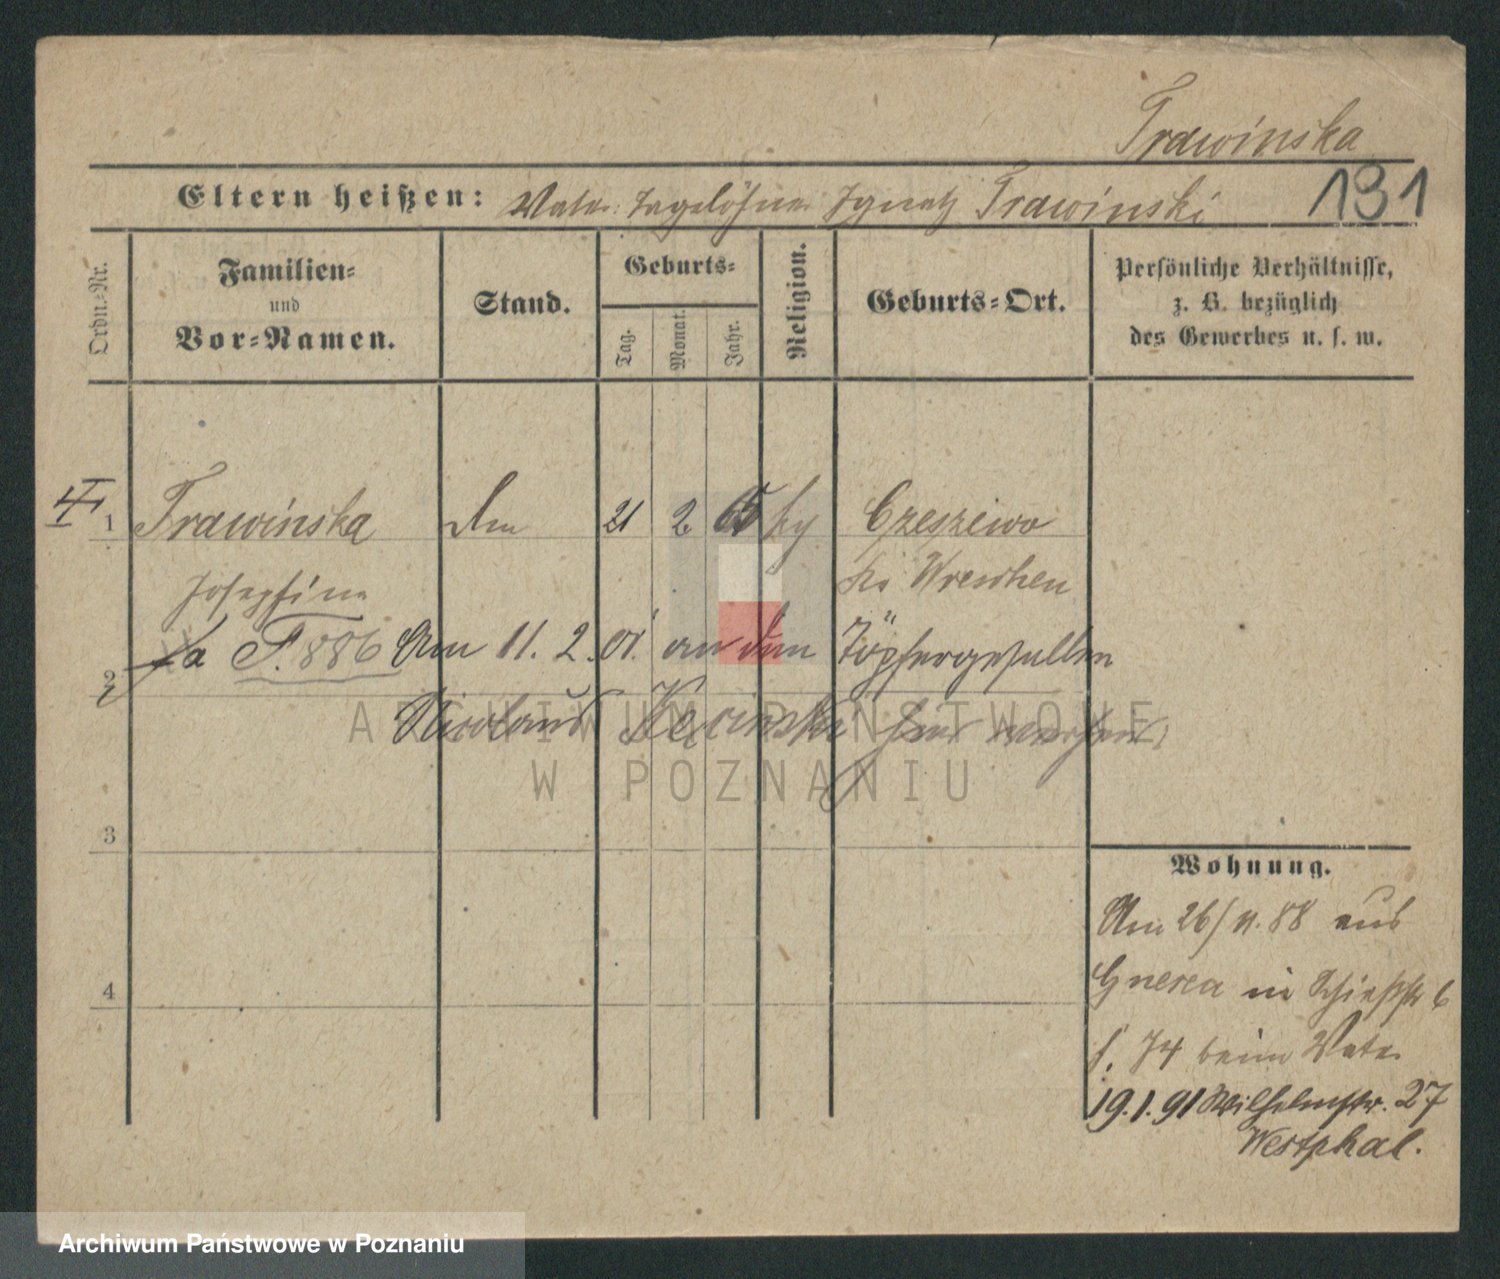 Trawinska
Eltern heißen: Vater: Tagelöhner Ignatz Trawinski
131
Ordn.-Nr.
Familien-
und
Vor-Namen.
Stand.
Geburts-
Tag.
Monat.
Jahr.
Religion.
Geburts-Ort.
Persönliche Verhältnisse,
z. B. bezüglich
des Gewerbes u. s. w.
1 Trawinska 21 2 65 Czeszewo
Josephine Wreschen
2 P. 886 Am 11. 2. 01. an den Töpfergesellen
Nicolaus
ARCHIWUM PAŃSTWOWE
W POZNANIU
3
4
Wohnung.
Am 26/11.88 aus
Gnesen in Schießstr 6
f. 74 beim Vater
19.1.91 Wilhelmstr. 27
Westphal.
Archiwum Państwowe w Poznaniu